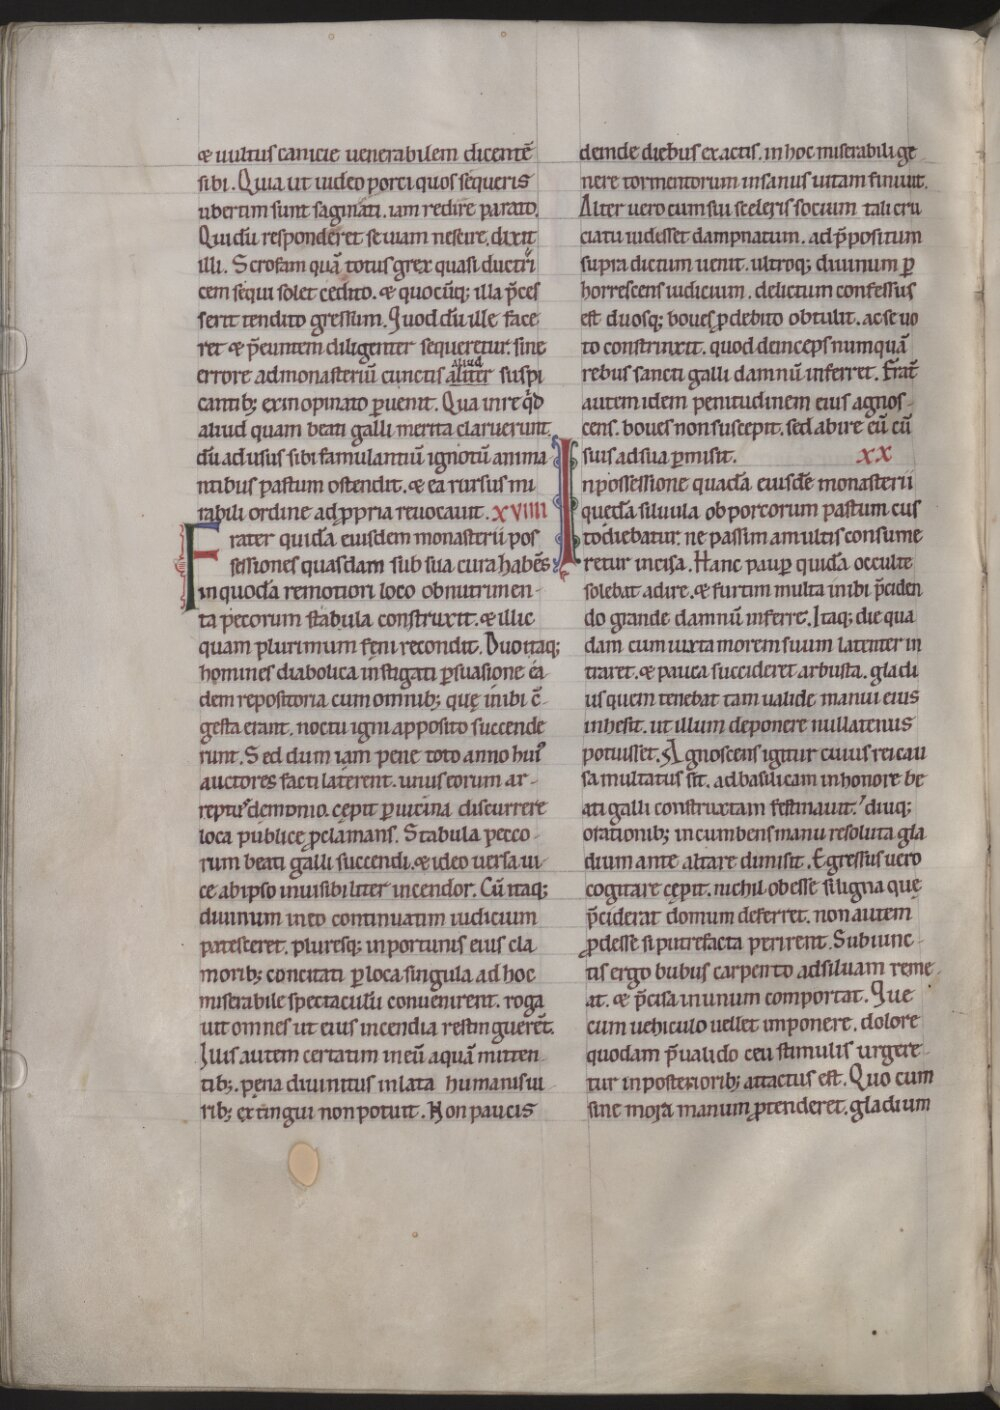 & uultus canicie uenerabilem dicentē
sibi. Quia ut uideo porci quos sequeris
ubertim sunt saginati. iam redire parato.
Qui dū responderet se uiam nescire. dixit
illi. Scrofam quā totus grex quasi ductri
cem sequi solet cedito. & quocūq; illa p̄ces
serit tendito gressum. Quod dū ille face
ret & p̄euntem diligenter sequeretur. sine
errore ad monasteriū cunctis aliter suspi
aliud
cantib; ex inopinato ꝑuenit. Qua in re qd̄
aliud quam beati galli merita claruerunt.
dū ad usus sibi famulantiū ignotū anima
ntibus pastum ostendit. & ea rursus mi
rabili ordine ad ꝓpria reuocauit. XVIIII
Frater quidā eiusdem monasterii pos
sessiones quasdam sub sua cura habēs
in quodā remotiori loco ob nutrimen-
ta pecorum stabula construxit. & illic
quam plurimum feni recondit. Duo itaq;
homines diabolica instigati ꝑsuasione ea
dem repositoria cum omnib; quę inibi c̄-
gesta erant. noctu igni apposito succende
runt. Sed dum iam pene toto anno hui᾽
auctores facti laterent. unus eorum ar-
rept᾽ demonio. cępit ꝑ uicina discurrere
loca publice ꝓclamans. Stabula peco-
rum beati galli succendi. & ideo uersa ui-
ce ab ipso inuisibiliter incendor. Cū itaq;
diuinum in eo continuatim iudicium
patesceret. pluresq; inportunis eius cla
morib; concitati ꝑ loca singula ad hoc
miserabile spectaculū conuenirent. roga
uit omnes ut eius incendia restinguerēt.
Illis autem certatim in eū aquā mitten-
tib;. pena diuinitus inlata humanis ui
rib; extingui non potuit. Non paucis
deinde diebus exactis. in hoc miserabili ge
nere tormentorum insanus uitam finiuit.
Alter uero cum sui sceleris socium tali cru
ciatu uidesset dampnatum. ad p̄positum
supra dictum uenit. ultroq; diuinum ꝑ
horrescens iudicium. delictum confessus
est duosq; boues ꝓ debito obtulit. ac se uo
to constrinxit. quod deinceps numquā
rebus sancti galli damnū inferret. Erat̄
autem idem penitudinem eius agnos-
cens. boues non suscepit. sed abire eū cū
suis ad sua ꝑmisit. XX
In possessione quadā eiusdē monasterii
quedā siluula ob porcorum pastum cus
todiebatur. ne passim a multis consume
retur incisa. Hanc pauꝑ quidā occulte
solebat adire. & furtim multa inibi p̄ciden
do grande damnū inferre. Itaq; die qua
dam cum iuxta morem suum latenter in
traret. & pauca succideret arbusta. gladi
us quem tenebat tam ualide manui eius
inhesit. ut illum deponere nullatenus
potuisset. Agnoscens igitur cuius rei cau
sa multatus sit. ad basilicam in honore be
ati galli constructam festinauit. diuq;
orationib; incumbens manu resoluta gla
dium ante altare dimisit. Egressus uero
cogitare cępit. nichil obesse si ligna quę
p̄ciderat domum deferret. non autem
ꝓdesse si putrefacta perirent. Subiunc-
tis ergo bubus carpento ad siluam reme
at. & p̄cisa in unum comportat. Que
cum uehiculo uellet imponere. dolore
quodam p̄ualido ceu stimulis urgere-
tur in posteriorib; attactus est. Quo cum
sine mora manum ꝓtenderet. gladium